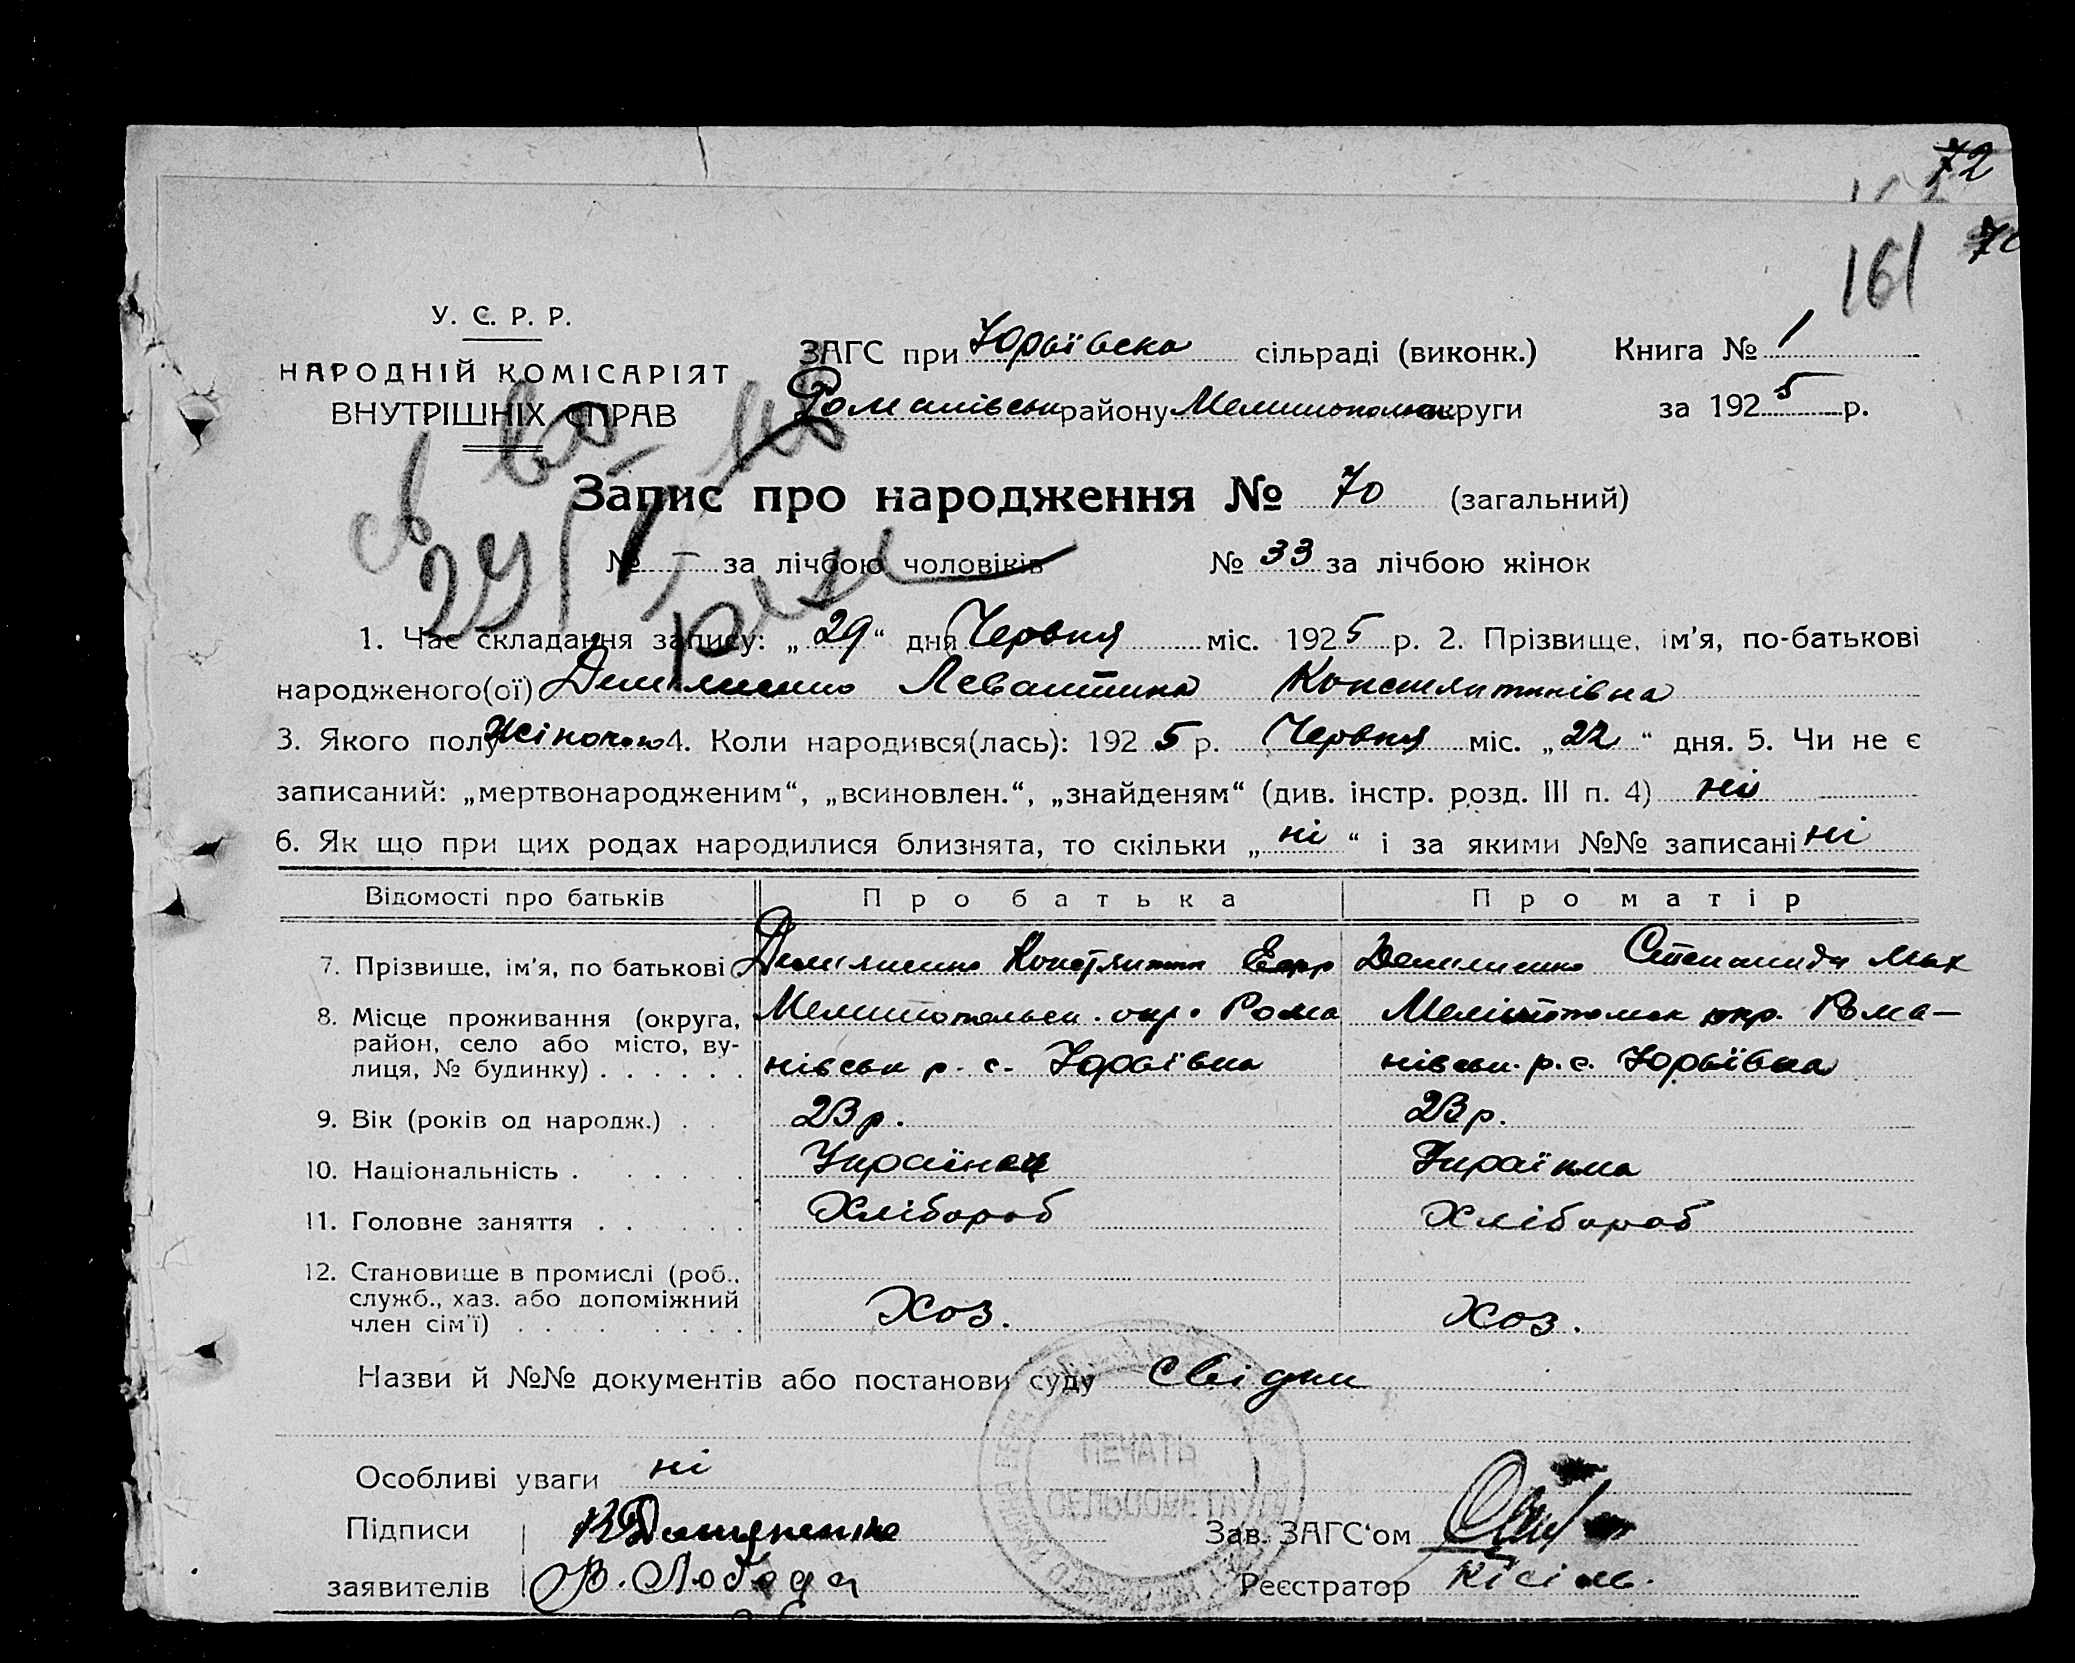 72
161 70
У. С. Р. Р.
НАРОДНІЙ КОМІСАРІЯТ
ВНУТРІШНІХ СПРАВ
ЗАГС при Юрьївска сільраді (виконк.) Книга № 1
Романівськ району Мелитопольск округи за 1925 р.
Запис про народження № 70 (загальний)
№ — за лічбою чоловіків № 33 за лічбою жінок
1. Час складання запису: „29“ дня Червня міс. 1925 р. 2. Прізвище, ім'я, по-батькові
народженого(ої) Константинівна
3. Якого полу Жіночого 4. Коли народився(лась): 1925 р. Червня міс. „22“ дня. 5. Чи не є
записаний: „мертвонародженим“, „всиновлен.“, „знайденям“ (див. інстр. розд. III п. 4) ні
6. Як що при цих родах народилися близнята, то скільки „ні“ і за якими №№ записані ні
Відомості про батьків Про батька Про матір
7. Прізвище, ім'я, по батькові Константин
8. Місце проживання (округа, район, село або місто, вулиця, № будинку) Мелитопольск. окр. Рома Мелітопольск окр. Рома—
нівськ р. с. Юрьївка нівськ. р. с. Юрьївка
9. Вік (років од народж.) 23 р. 23 р.
10. Національність Українец Українка
11. Головне заняття Хлібороб Хлібороб
12. Становище в промислі (роб.,
служб., хаз. або допоміжний
член сім'ї) Хоз. Хоз.
Назви й №№ документів або постанови суду свідки
Особливі уваги ні
Підписи Зав. ЗАГС'ом
заявителів В. Лобода Реєстратор Кісіль.
ПЕЧАТЬ